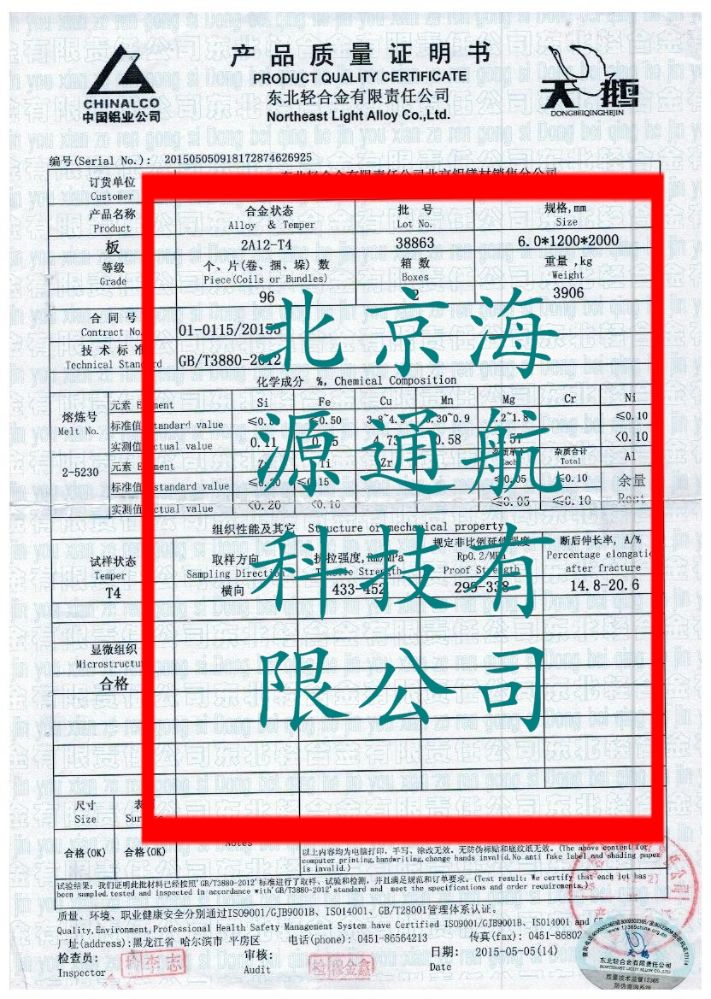 产品质量证明书
PRODUCT QUALITY CERTIFICATE
东北轻合金有限责任公司
Northeast Light Alloy Co.,Ltd.
CHINALCO
中国铝业公司
天鹅
DONGBEIQINGHEJIN
编号(Serial No.): 201505050918172874626925
订货单位
Customer
产品名称 合金状态 批 号 规格,mm
Product Alloy & Temper Lot No. Size
板 2A12-T4 38863 6.0*1200*2000
等级 个、片(卷、捆、垛) 数 箱 数 重量 ,kg
Grade Piece(Coils or Bundles) Boxes Weight
96 2 3906
合 同 号
Contract No. 01-0115/2015
技 术 标 准
Technical Standard GB/T3880-2012
化学成分 %, Chemical Composition
熔炼号 元素 Element Si Fe Cu Mn Mg Cr Ni
Melt No. 标准值 standard value ≤0.50 0.30~0.9 ≤0.10
实测值 actual value 0.11 4.73 0.58 <0.10
2-5230 元素 Element Ti Zr 杂质合计 Total Al
标准值 standard value ≤0.15 ≤0.05 ≤0.10 余量
实测值 actual value <0.20 <0.10 ≤0.05 ≤0.10 Rest
组织性能及其它 Structure or mechanical property
试样状态 取样方向 抗拉强度, 规定非比例延伸强度 断后伸长率, A/%
Temper Sampling Direction Tensile Strength Rp0.2/MPa Proof Strength Percentage elongation after fracture
T4 横向 433-452 295-338 14.8-20.6
显微组织
Microstructure
合格
北京海
源通航
科技有
限公司
尺寸
Size
合格(OK) 合格(OK) Notes
以上内容均为电脑打印, 手写、涂改无效。无防伪标贴和底纹纸无效。(The above content for
computer printing,handwriting,change hands invalid.No anti fake label and shading paper
is invalid.)
试验结果: 我们证明此批材料已经按照'GB/T3880-2012'标准进行了取样、试验和检测, 并且满足规范和订单要求。(Test result: We certify that each lot has
been sampled,tested and inspected in accordance with'GB/T3880-2012' standard and meet the specifications and order requirements.)
质量、环境、职业健康安全分别通过ISO9001/GJB9001B、ISO14001、GB/T28001管理体系认证。
Quality,Environment,Professional Health Safety Management System have Certified ISO9001/GJB9001B、ISO14001 and
厂址(address):黑龙江省 哈尔滨市 平房区 电话(phone): 0451-86564213 传真(fax): 0451-86802
检查员: 审核: 日期: 2015-05-05(14)
Inspector Audit Date
东北轻合金有限责任公司